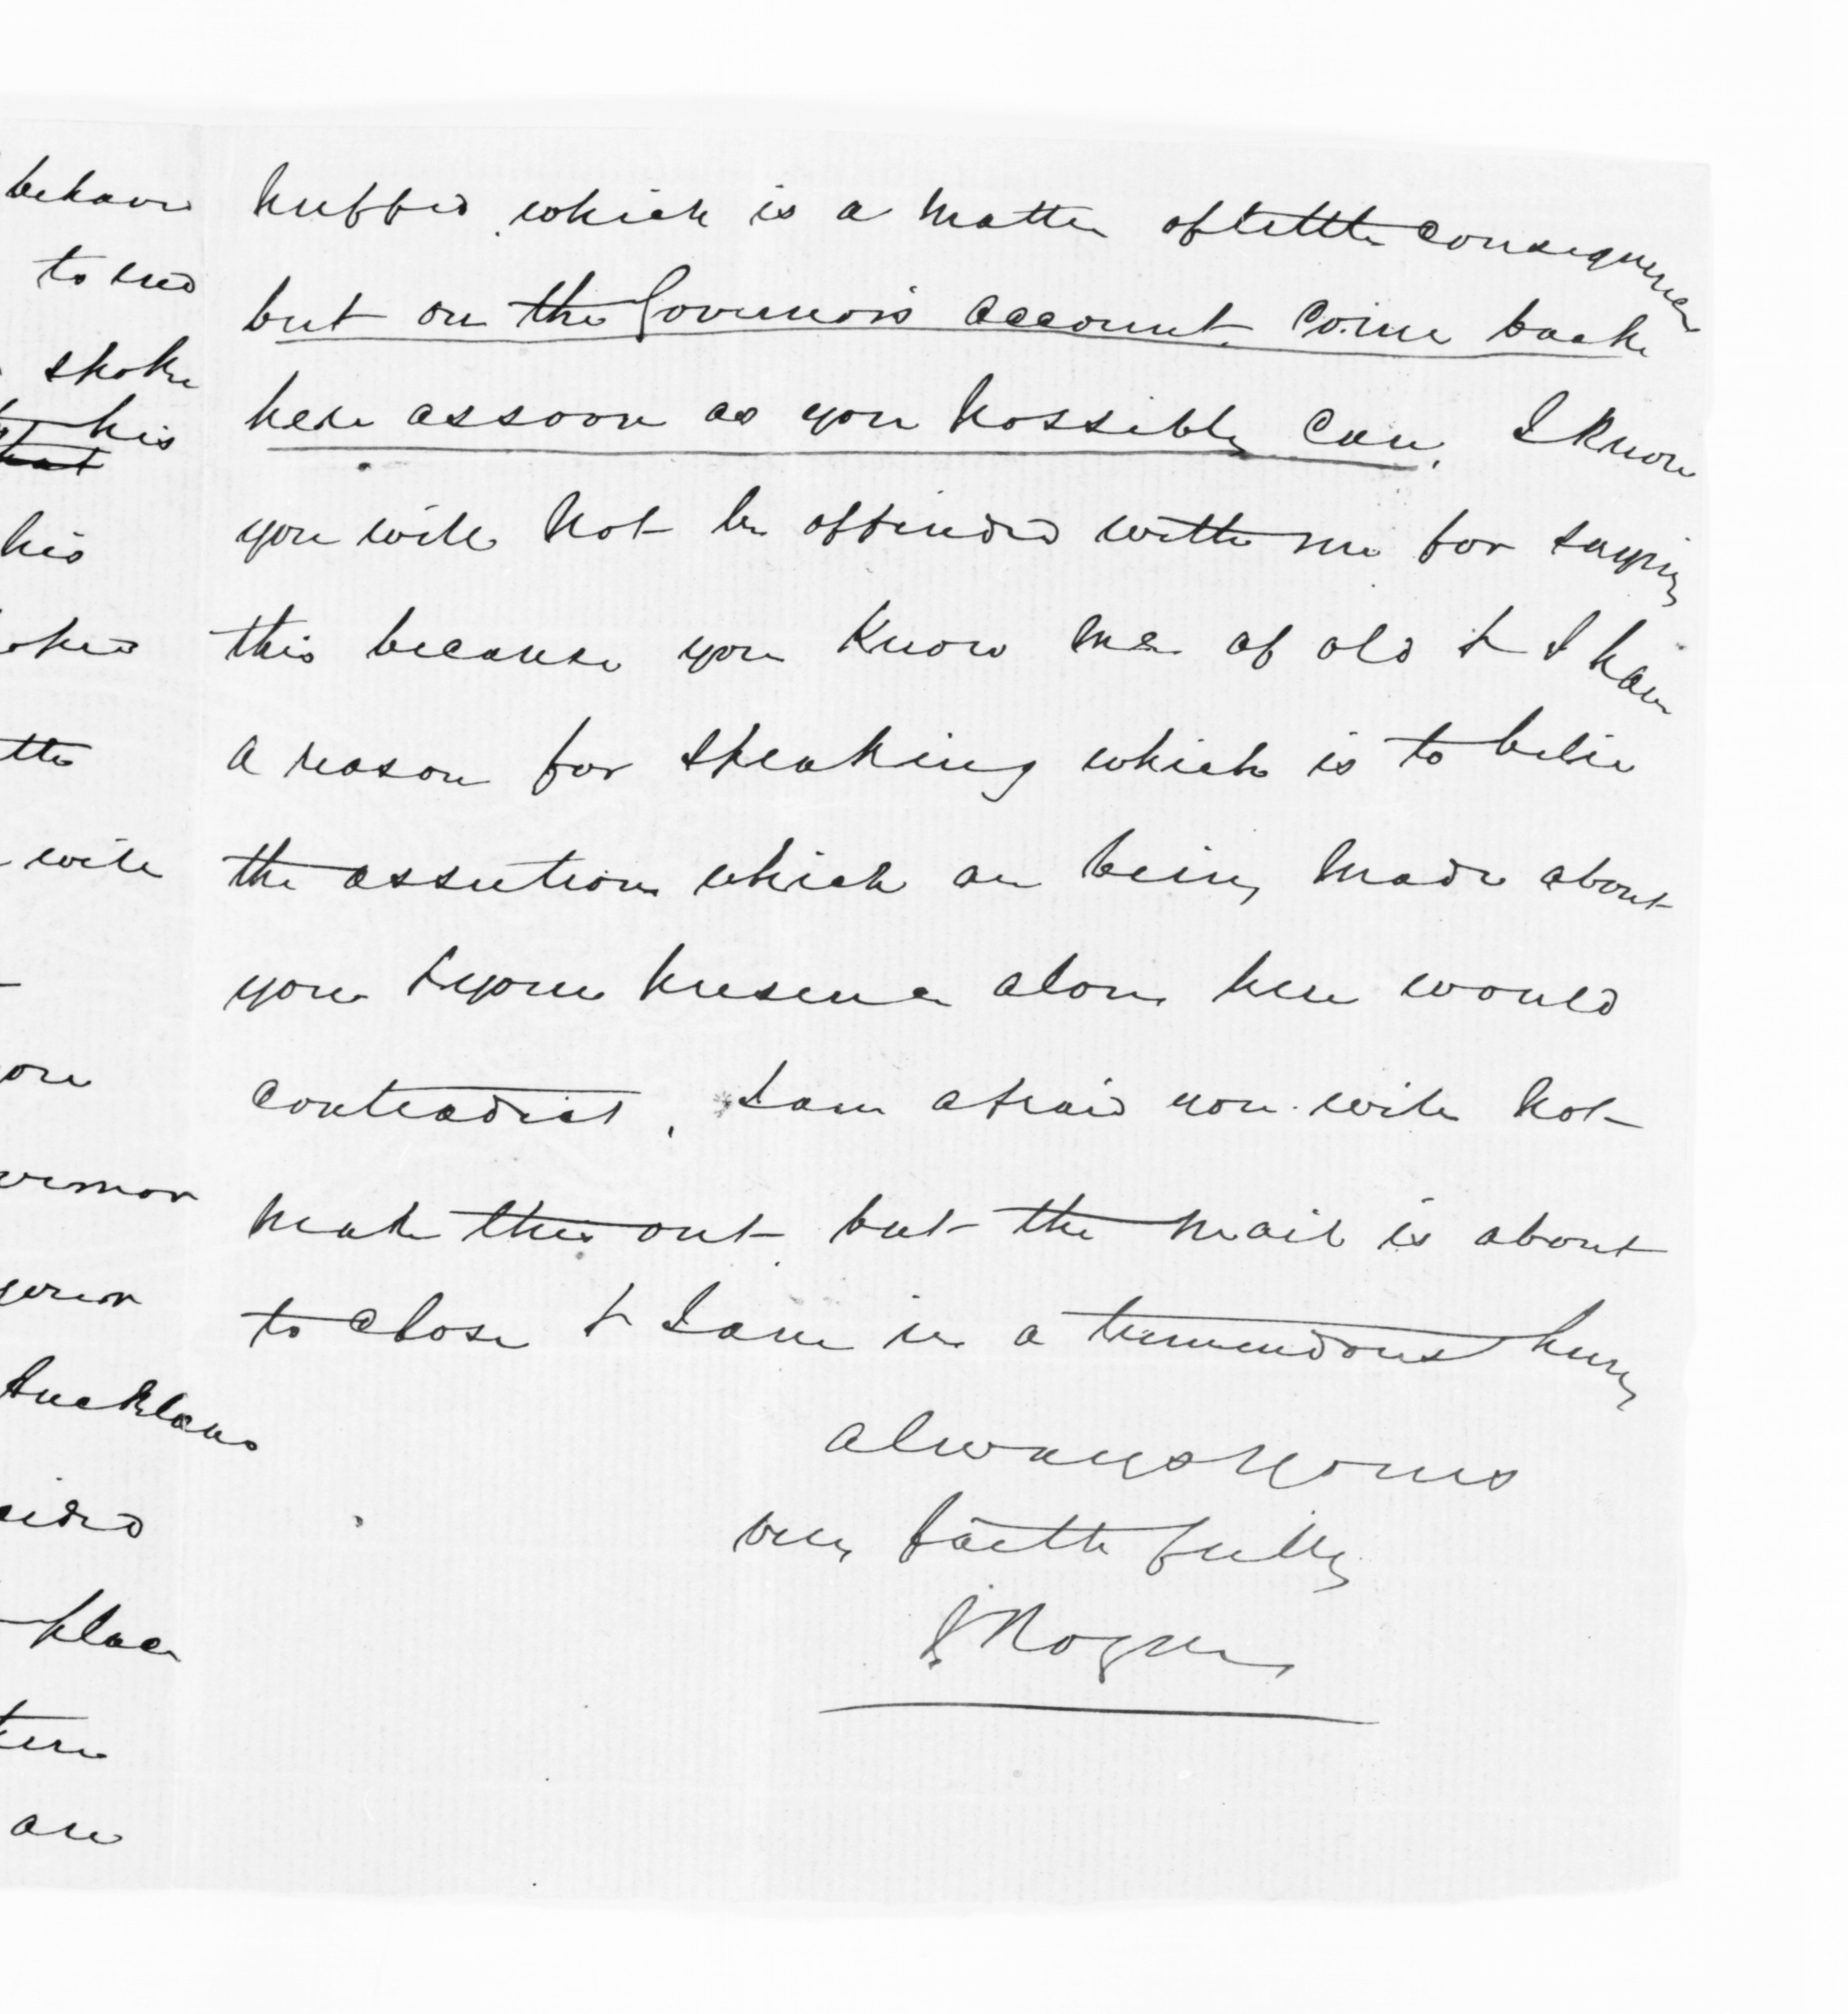 behave
to end
spoke
his
that
his
the
will
you
Auckland
place
are
huffed which is a matter of little consequence
but on the Governor's account come back
here as soon as you possibly can. I know
you will not be offended with me for saying
this because you know me of old & I have
a reason for speaking which is to belie
the assertions which are being made about
you & your presence alone here would
contradict. I am afraid you will not
make this out but the mail is about
to close & I am in a tremendous hurry
always yours
very faithfully
J Rogan